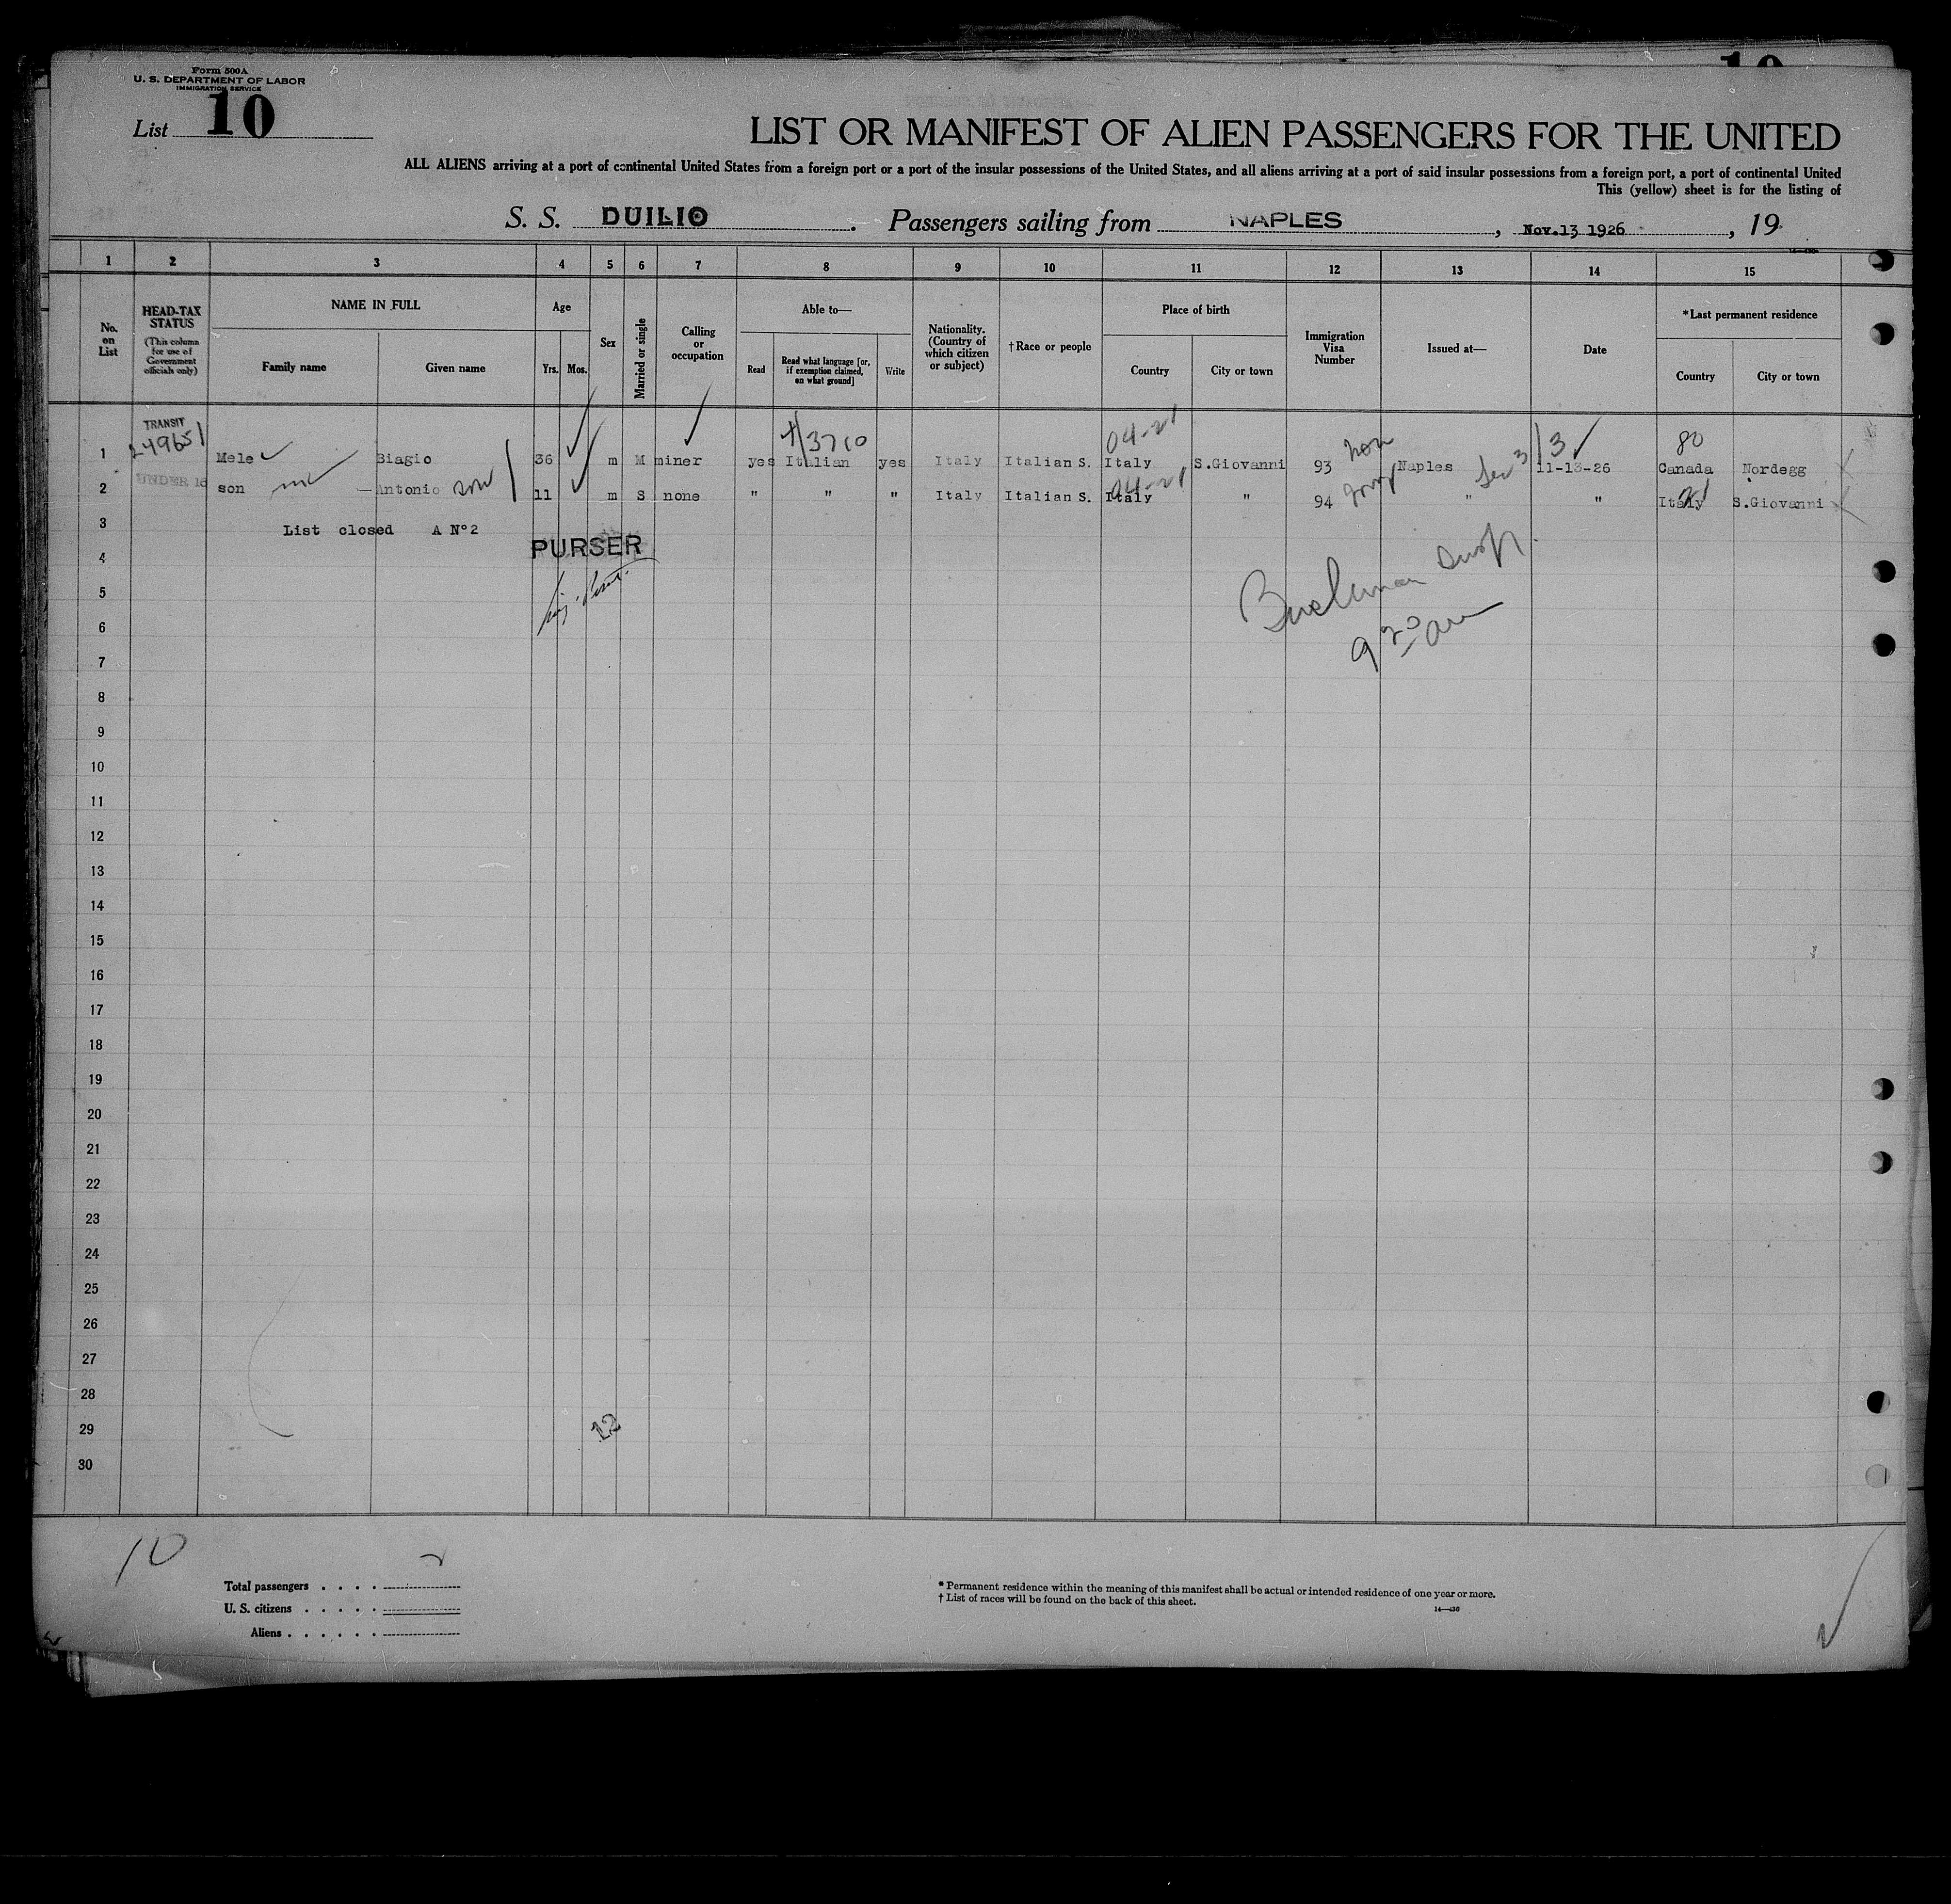 Form 500A
U. S. DEPARTMENT OF LABOR
IMMIGRATION SERVICE
List 10
10
LIST OR MANIFEST OF ALIEN PASSENGERS FOR THE UNITED
ALL ALIENS arriving at a port of continental United States from a foreign port or a port of the insular possessions of the United States, and all aliens arriving at a port of said insular possessions from a foreign port, a port of continental United
This (yellow) sheet is for the listing of
S. S. DUILIO. Passengers sailing from NAPLES, Nov.13 1926, 19
1 2 3 4 5 6 7 8 9 10 11 12 13 14 15
No. on List
HEAD-TAX STATUS
(This column for use of Government officials only)
NAME IN FULL
Family name Given name
Age
Yrs. Mos.
Sex
Married or single
Calling or occupation
Able to—
Read
Read what language [or, if exemption claimed, on what ground]
Write
Nationality. (Country of which citizen or subject)
†Race or people
Place of birth
Country City or town
Immigration Visa Number
Issued at—
Date
*Last permanent residence
Country City or town
TRANSIT
249651 3710 04-21 3 80
1 Mele Biagio 36 m M miner yes Italian yes Italy Italian S. Italy S.Giovanni 93 Naples Sec 3 11-13-26 Canada Nordegg
UNDER 16 04-21
2 son Antonio son 11 m S none " " " Italy Italian S. Italy " 94 " " Italy S.Giovanni
3 List closed A N° 2
PURSER
4
5
6
9 20 am
7
8
9
10
11
12
13
14
15
16
17
18
19
20
21
22
23
24
25
26
27
28
29
12
30
10
Total passengers . . . .
U. S. citizens . . . . .
Aliens . . . . . .
* Permanent residence within the meaning of this manifest shall be actual or intended residence of one year or more.
† List of races will be found on the back of this sheet.
14—430